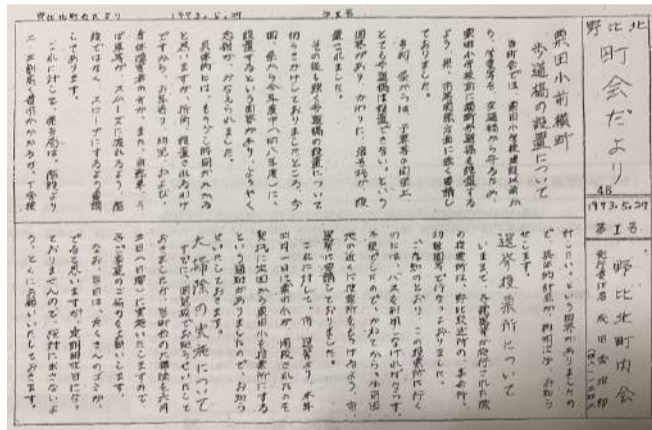 野比北町会だより 1973.5.29 第1号
野比北
町会だより
48
1973.5.29
第1号
野比北町内会
粟田小前横町
歩道橋の設置について
当町会では、粟田小学校建設以前か
ら、学童等を、交通禍から守るため、
粟田小学校前に横断歩道橋を設置する
よう、県、市等関係方面に強く要請し
ておりました。
当初、県からは、予算等の関係上
とても歩道橋は設置できない。という
回答があり、かわりに、信号機が設
置されました。
その後も歩道橋の設置について
ところ、今
回、県から今年度中(四八年度)に、
設置するという回答があり、ようやく
念願が、かなえられました。
具体的には、もう少し時間がかかる
と思いますが、設置されるわけ
ですから、お年寄り、幼児、および、
身体障害者の方が、また、自転車、う
ば車等が、スムーズに渡れるよう、階
段ではなく、スロープにするよう要請
してあります。
これに対して、県当局は、階段より
対したい、という回答がありましたの
で、具体的計画が、判明次第、お知ら
せします。
選挙投票所について
いままで、各種選挙が施行された際
の投票所は、野比
行なっておりました。
ご存知のとおり、この投票所に行く
のには、バスを利用しなければならず、
不便でしたので、かねてから、
地の近くに投票所をもうけるよう、市、
選管に要請しておりました。
これに対して、市、選管より、本年
四月一日に粟田小が、開校されたのを
契機に次回から粟田小を投票所にする
という通知がありましたので、お知ら
せいたしておきます。
大掃除の実施について
すでに、回覧板でお知らせいたして
おきましたが、当町会の大掃除を六月
三日(日曜)に実施いたしますので、
各ご家庭のご協力をお願いします。
なお、当日は、たくさんのゴミが、
でると思いますが、定期回収日にな
っておりませんので、絶対に出さないよ
う、とくにお願いいたしておきます。